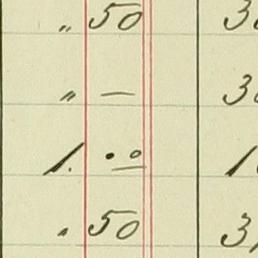 " 50 3
" — 3
1. 00 1
" 50 3